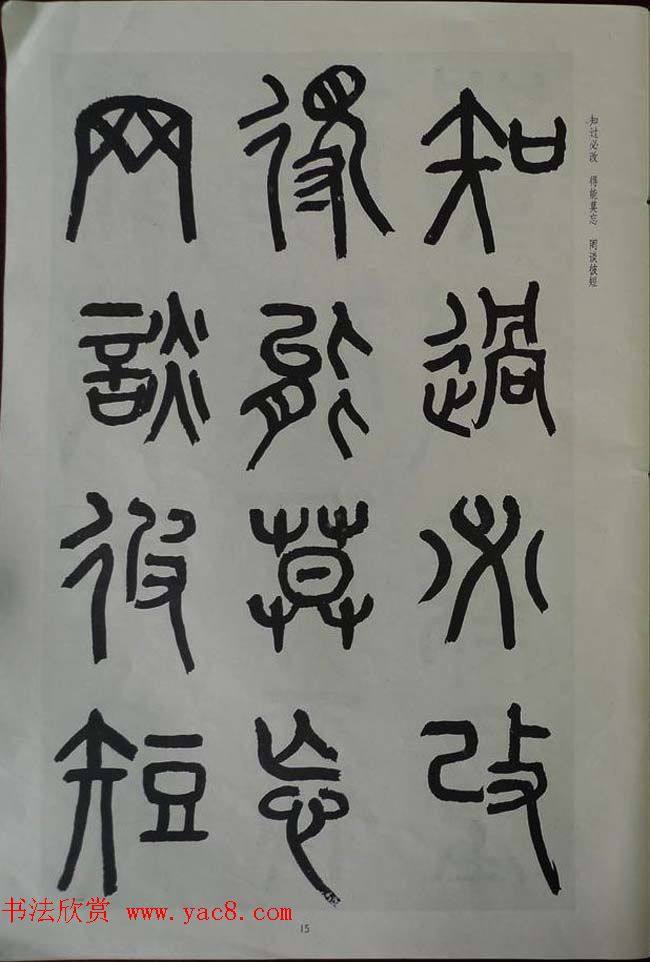 知過必改
得能莫忘
罔談彼短
知过必改　得能莫忘　罔谈彼短
书法欣赏 www.yac8.com
15